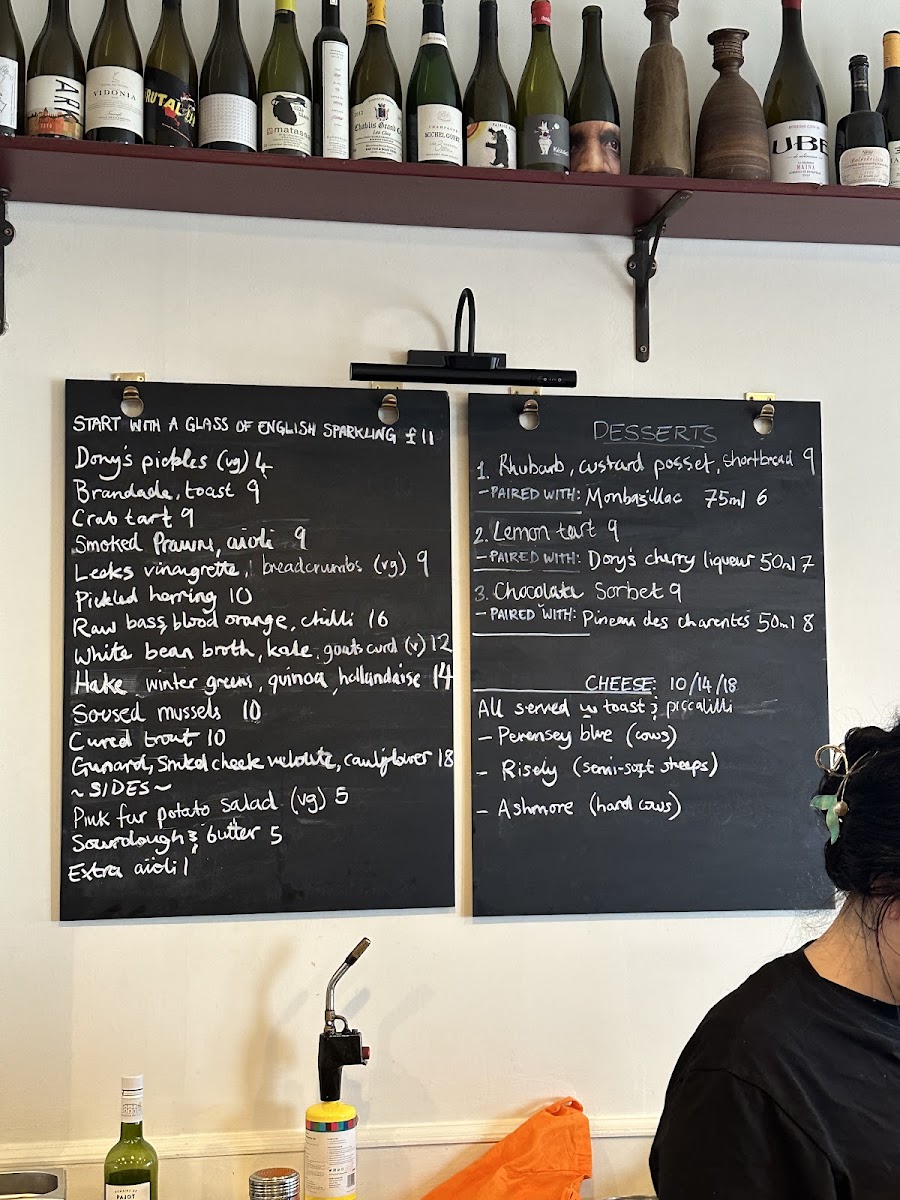 ARK
VIDONIA
BRUTAL
matassa
Chablis Grand Cru
Les Clos
CHAMPAGNE
MICHEL GONET
UBE
MAINA
START WITH A GLASS OF ENGLISH SPARKLING £11
Dory's pickles (vg) 4
Brandade, toast 9
Crab tart 9
Smoked Prawns, aioli 9
Leeks vinaigrette, breadcrumbs (vg) 9
Pickled herring 10
Raw bass, blood orange, chilli 16
White bean broth, kale, goats curd (v) 12
Hake winter greens, quinoa, hollandaise 14
Soused mussels 10
Cured trout 10
Gunard, Smked cheek veloute, cauliflower 18
~SIDES~
Pink fur potato salad (vg) 5
Sourdough & butter 5
Extra aïoli 1
DESSERTS
1. Rhubarb, custard posset, shortbread 9
- PAIRED WITH: Monbazillac 75ml 6
2. Lemon tart 9
- PAIRED WITH: Dory's cherry liqueur 50ml 7
3. Chocolate Sorbet 9
- PAIRED WITH: Pineau des charentes 50ml 8
CHEESE: 10/14/18
All served w toast & piccalilli
- Perensey blue (cows)
- Risely (semi-soft sheeps)
- Ashmore (hard cows)
PAJOT